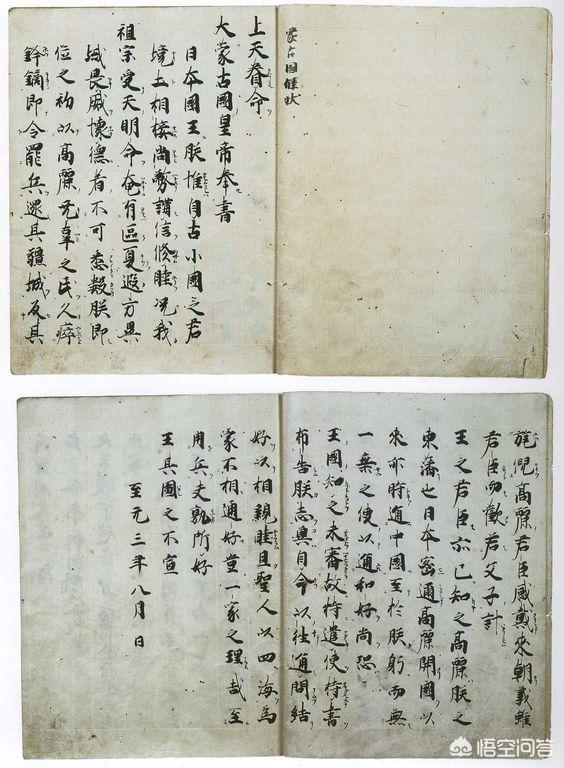 蒙古國牒状
上天眷命
大蒙古國皇帝奉書
日本國王朕惟自古小國之君
境土相接尚務講信修睦況我
祖宗受天明命奄有區夏遐方異
域畏威懷德者不可悉數朕即
位之初以高麗无辜之民久瘁
鋒鏑即令罷兵還其疆域反其
旄倪高麗君臣感戴來朝義雖
君臣而歡若父子計
王之君臣亦已知之高麗朕之
東藩也日本密邇高麗開國以
來亦時通中國至於朕躬而無
一乘之使以通和好尚恐
王國知之未審故特遣使持書
布告朕志冀自今以往通問結
好以相親睦且聖人以四海為
家不相通好豈一家之理哉至
用兵夫孰所好
王其圖之不宣
至元三年八月日
悟空问答